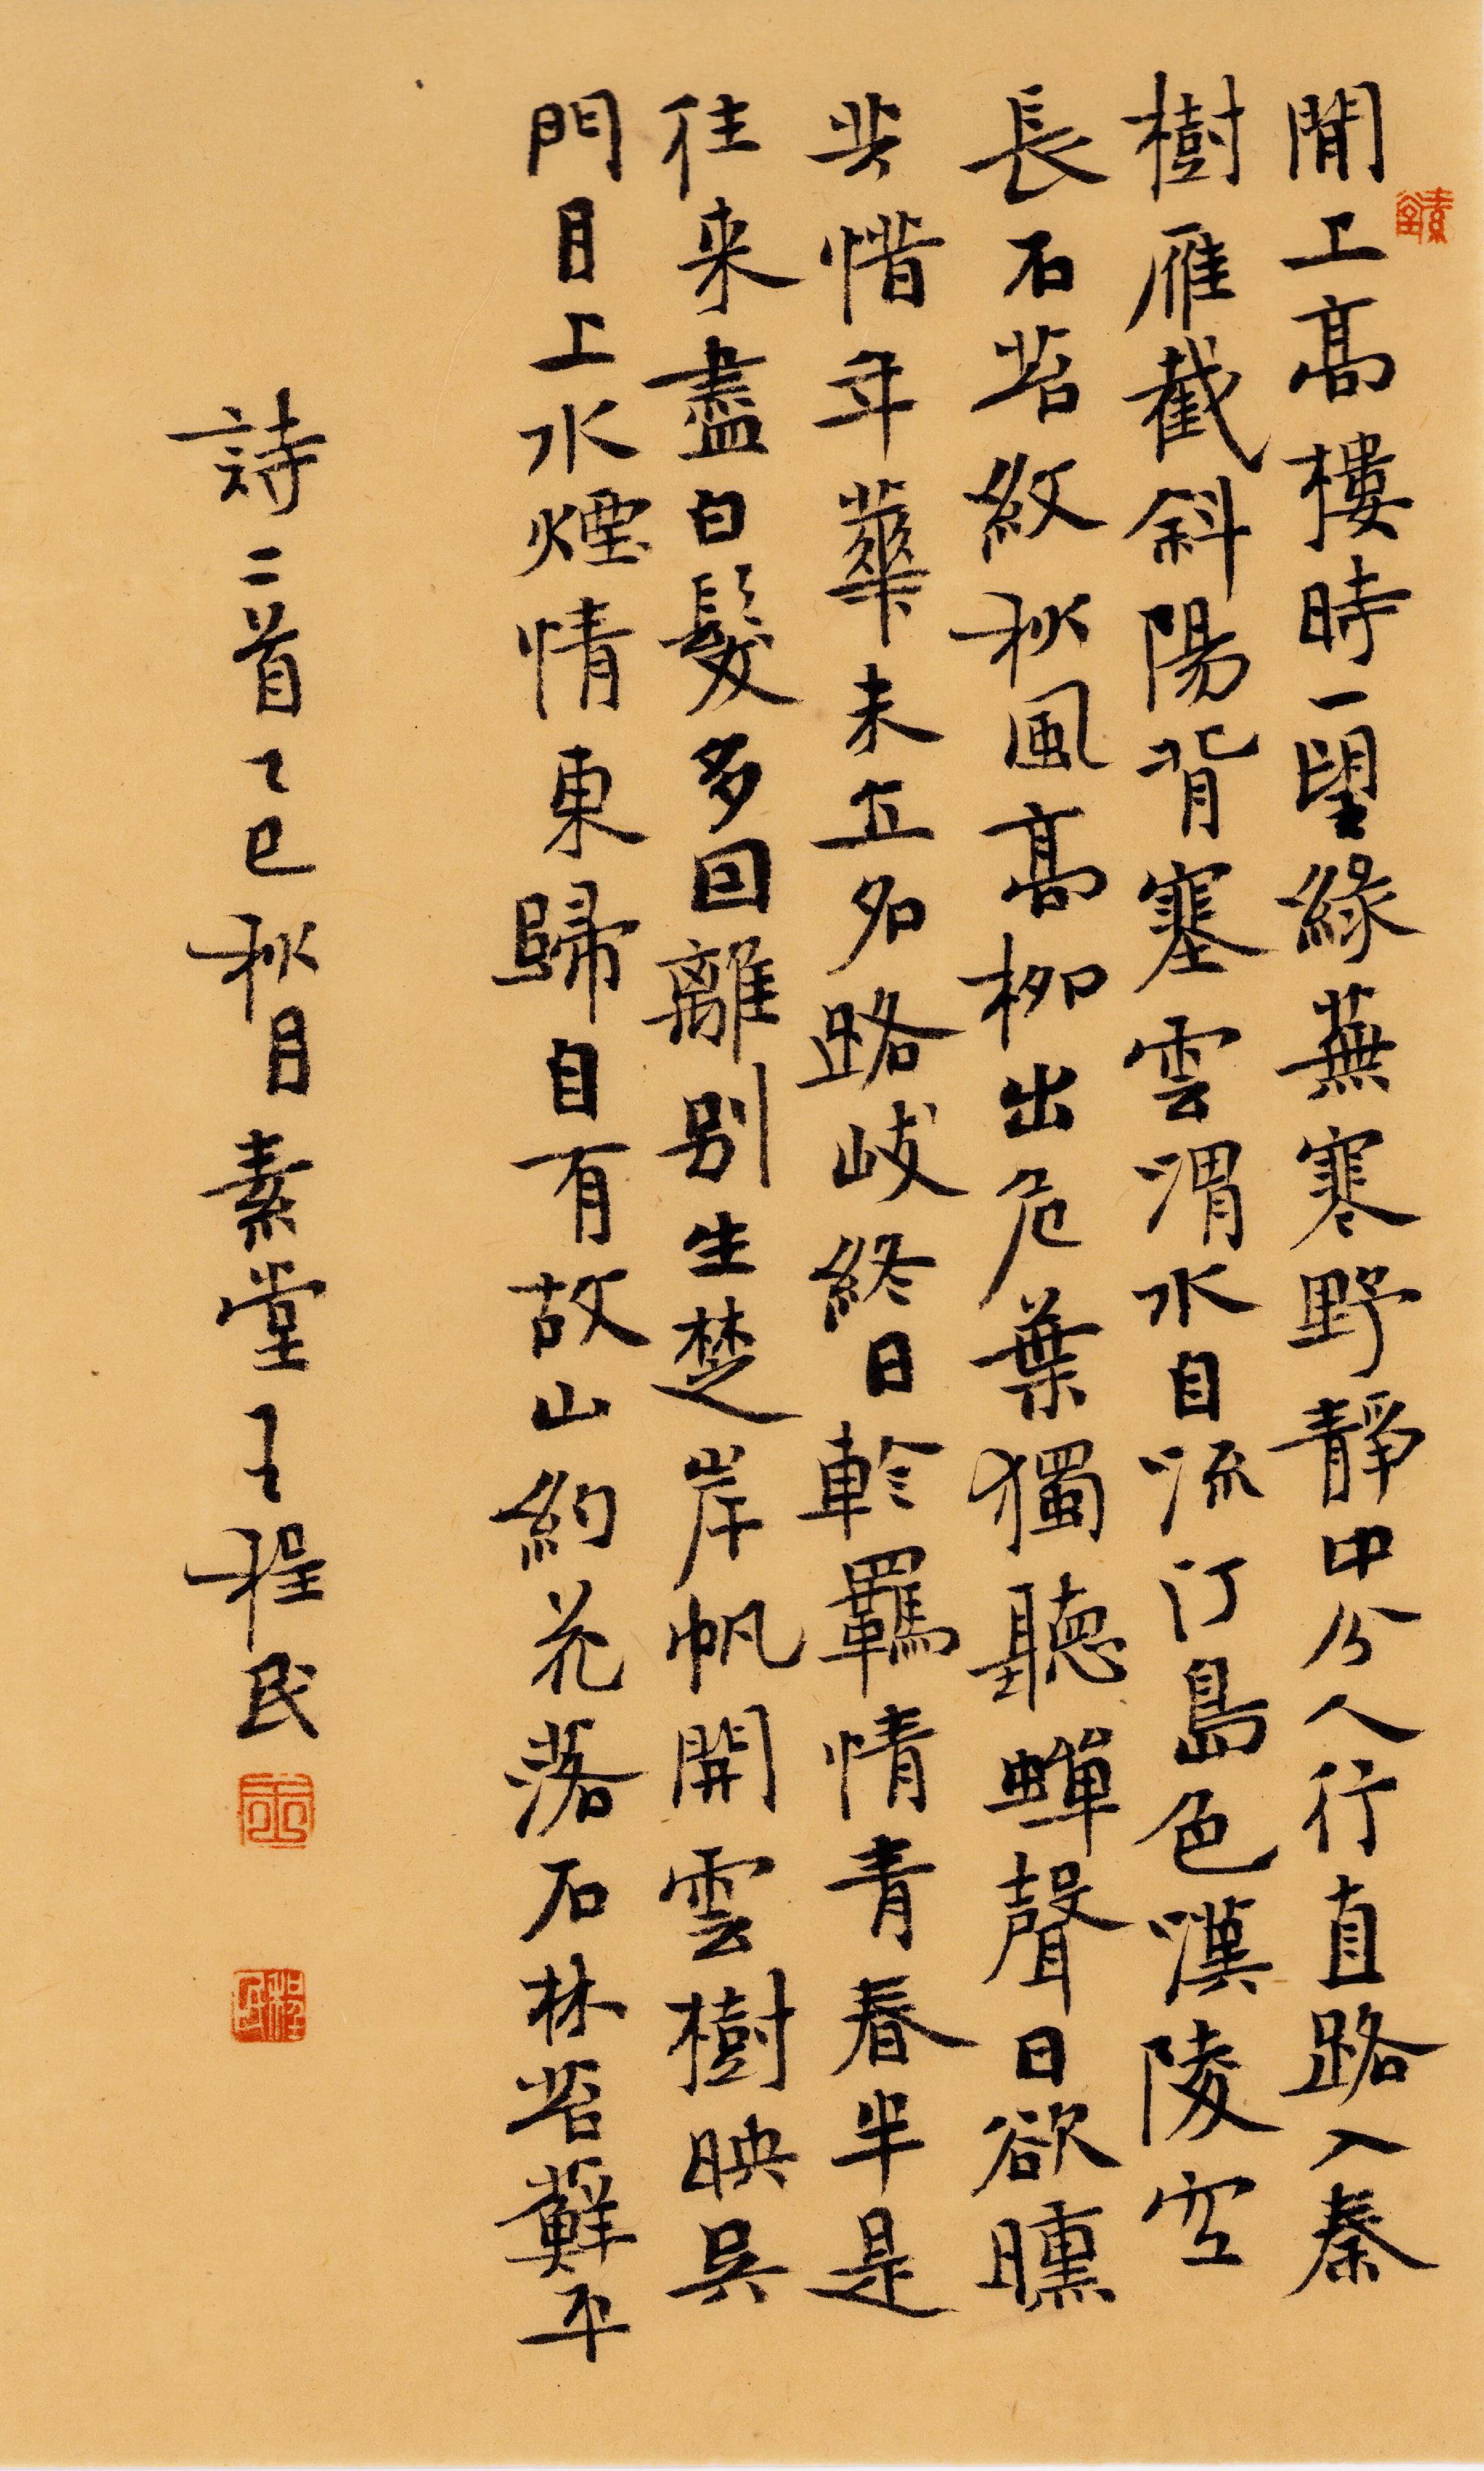 閒上高樓時一望綠蕪寒野靜中分人行直路入秦
樹雁截斜陽背塞雲渭水自流汀島色漢陵空
長石苔紋秋風高柳出危葉獨聽蟬聲日欲曛
共惜年華未立名路岐終日軫羈情青春半是
往来盡白髮多因離別生楚岸帆開雲樹映吳
門月上水煙情東歸自有故山約花落石林苔蘚平
詩二首乙巳秋月素堂王程民